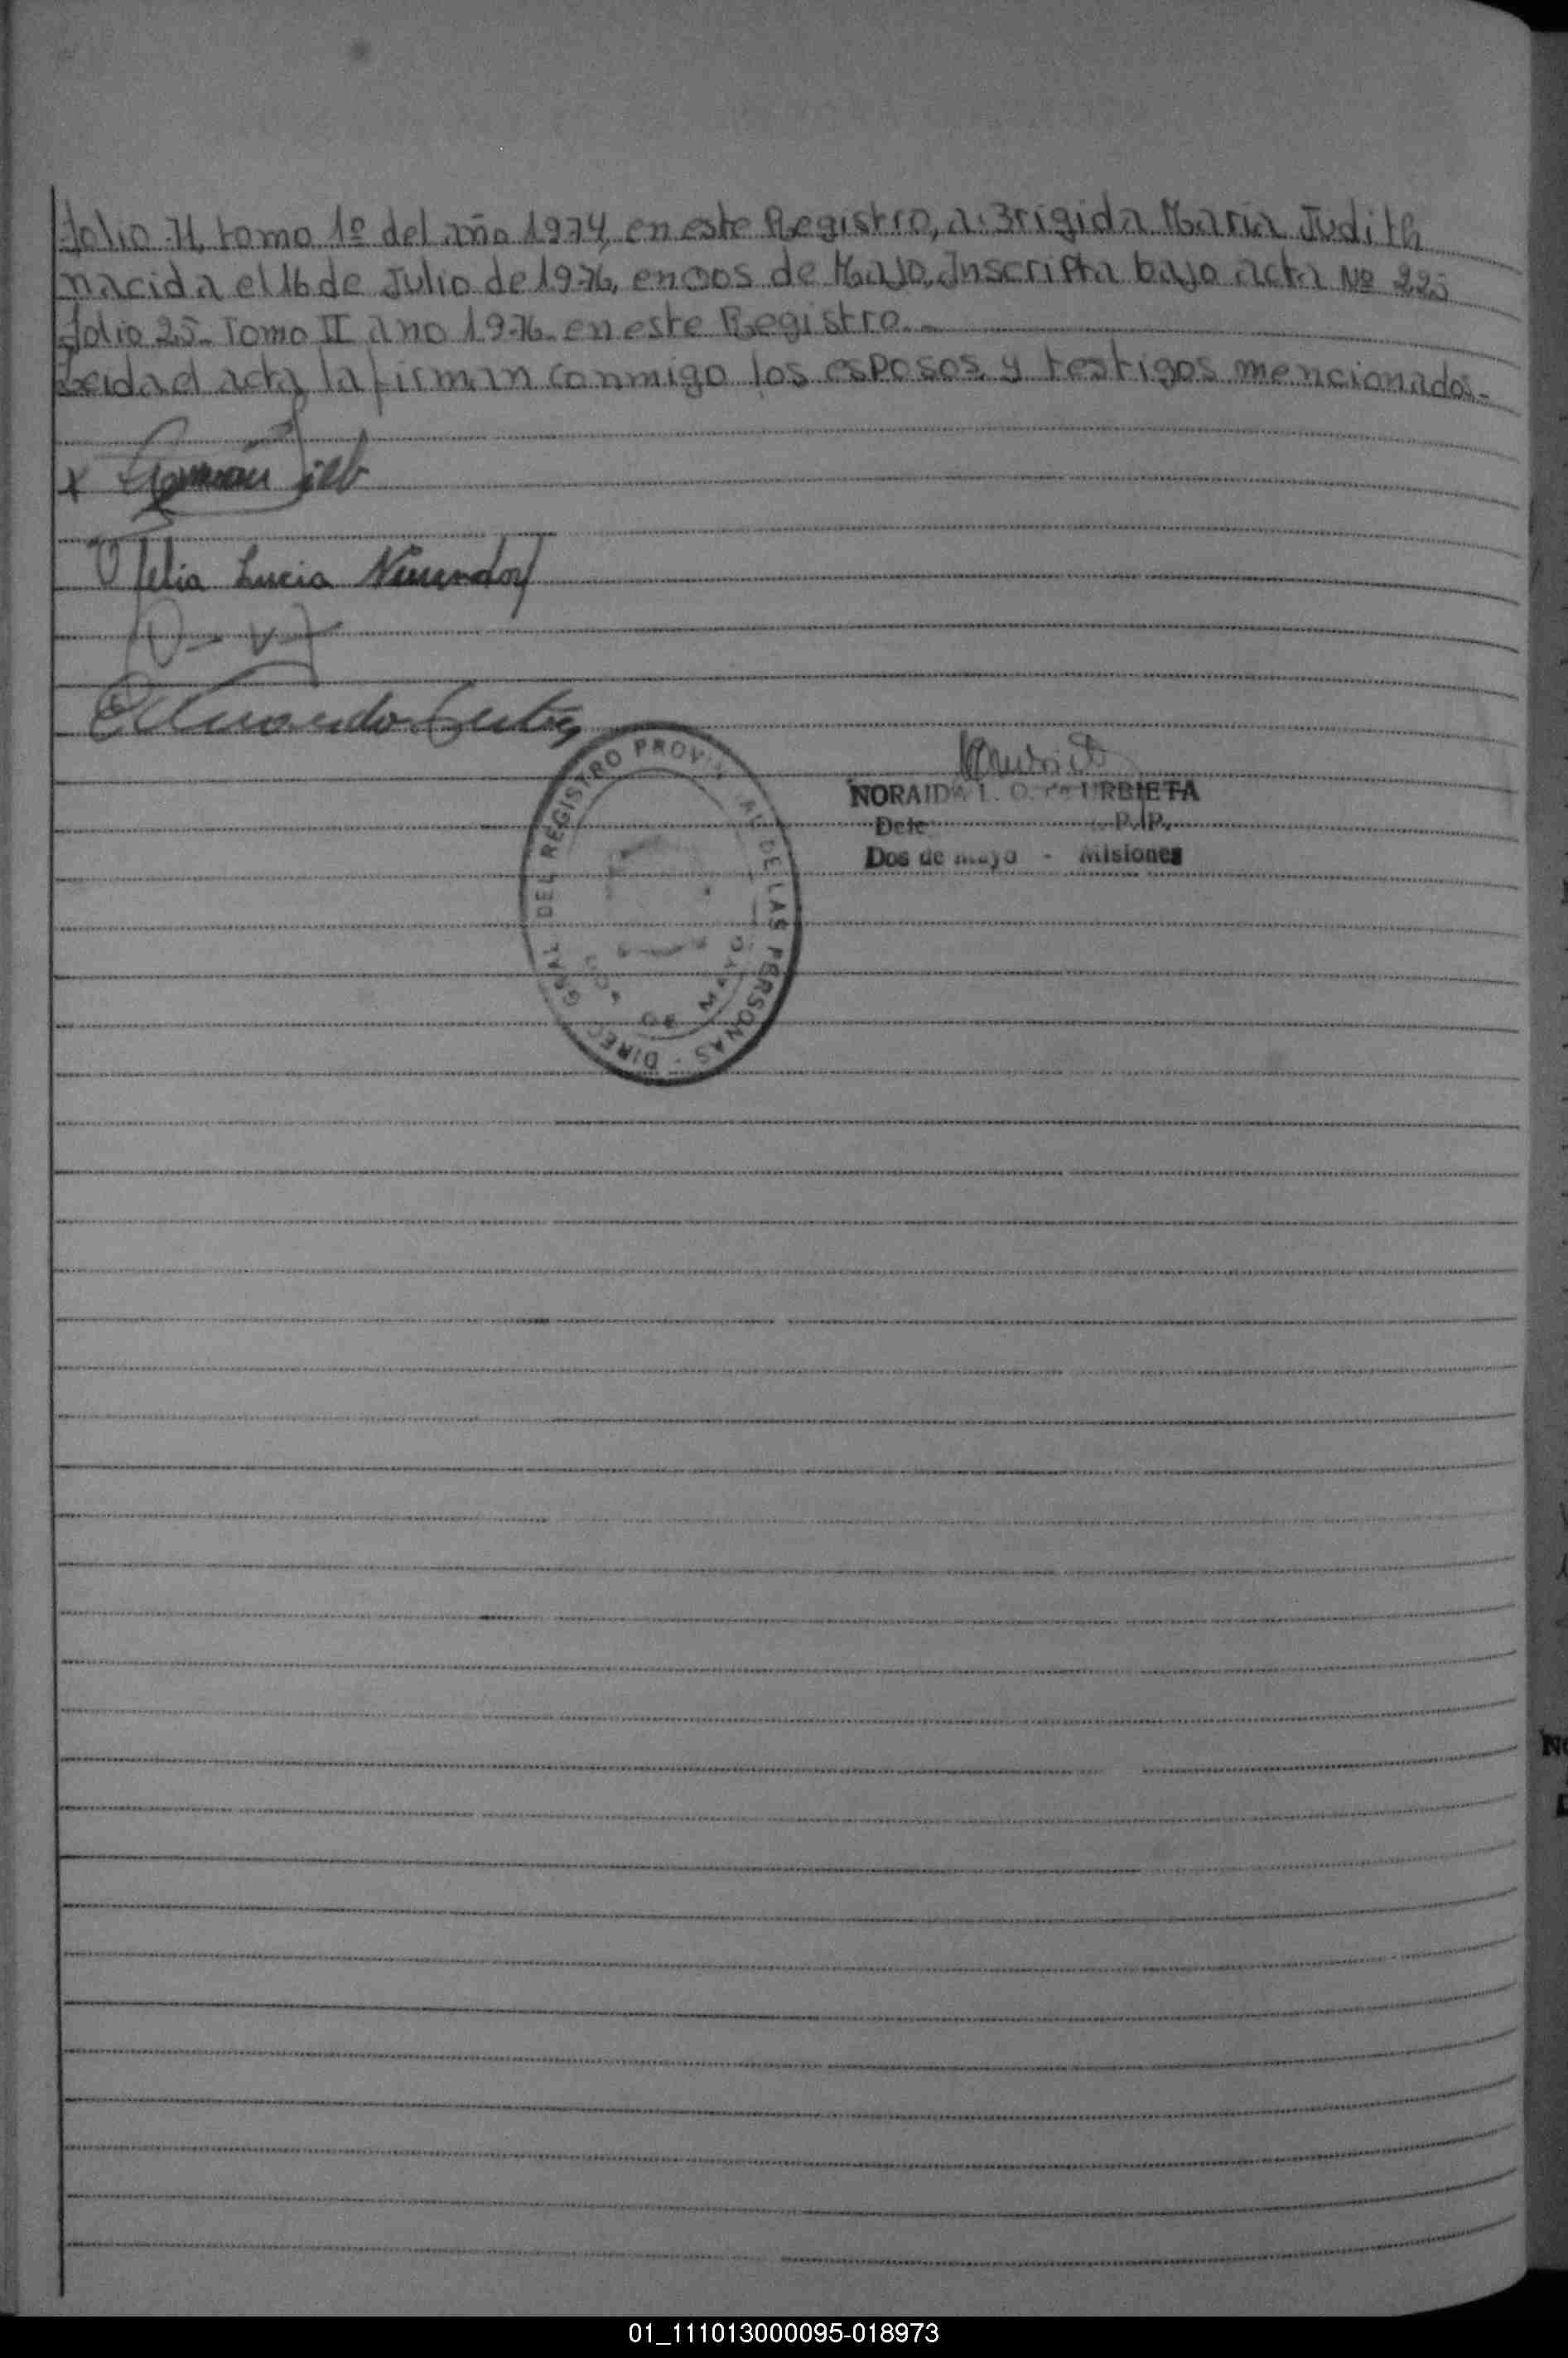 folio 71, tomo 1º del año 1974, en este Registro, a: Brigida Maria Judith
nacida el 16 de Julio de 1976, en Dos de Mayo, Inscripta bajo acta Nº 225
folio 25. Tomo II año 1976. en este Registro.-
Leida el acta, la firman conmigo los esposos y testigos mencionados.-
x
Ofelia Lucia Neuendorf
NORAIDA L. O. de URBIETA
Dele P. P.
Dos de mayo - Misiones
DIREC. GRAL DEL REGISTRO PROVINCIAL DE LAS PERSONAS -
DOS DE MAYO
01_111013000095-018973